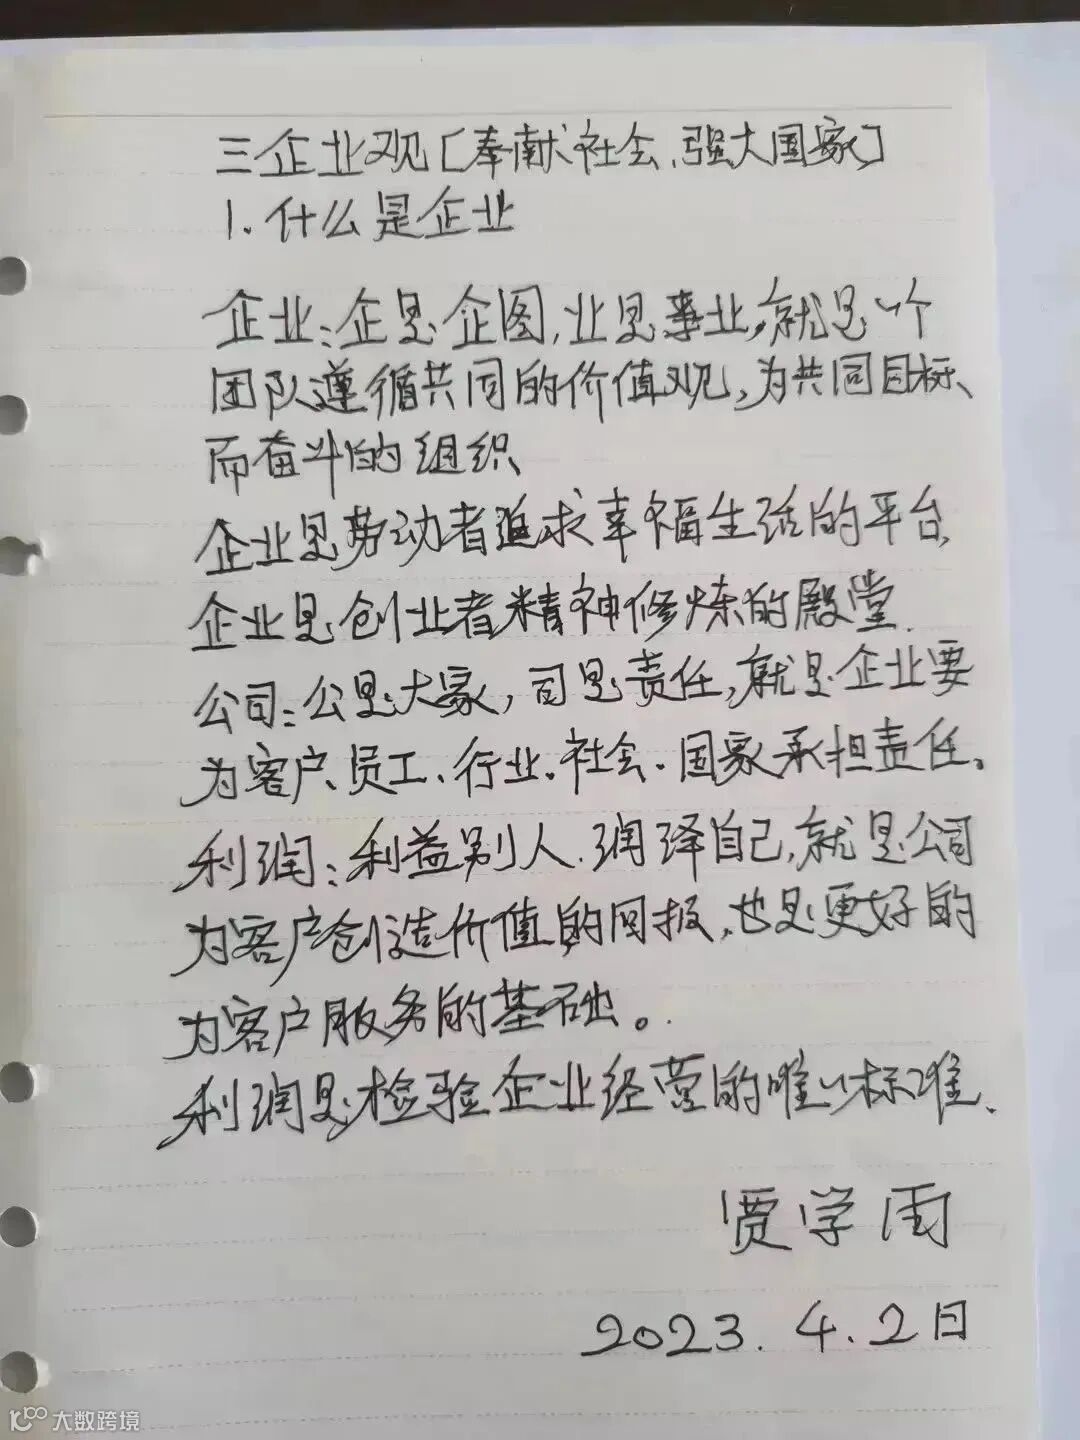 三企业观[奉献社会、强大国家]
1.什么是企业
企业：企是企图，业是事业，就是一个
团队遵循共同的价值观，为共同目标、
而奋斗的组织、
企业是劳动者追求幸福生活的平台、
企业是创业者精神修炼的殿堂.
公司：公是大家，司是责任，就是企业要
为客户、员工、行业、社会、国家承担责任。
利润：利益别人、润泽自己，就是公司
为客户创造价值的回报，也是更好的
为客户服务的基础。
利润是检验企业经营的唯一标准、
贾学雨
2023.4.2日
大数跨境